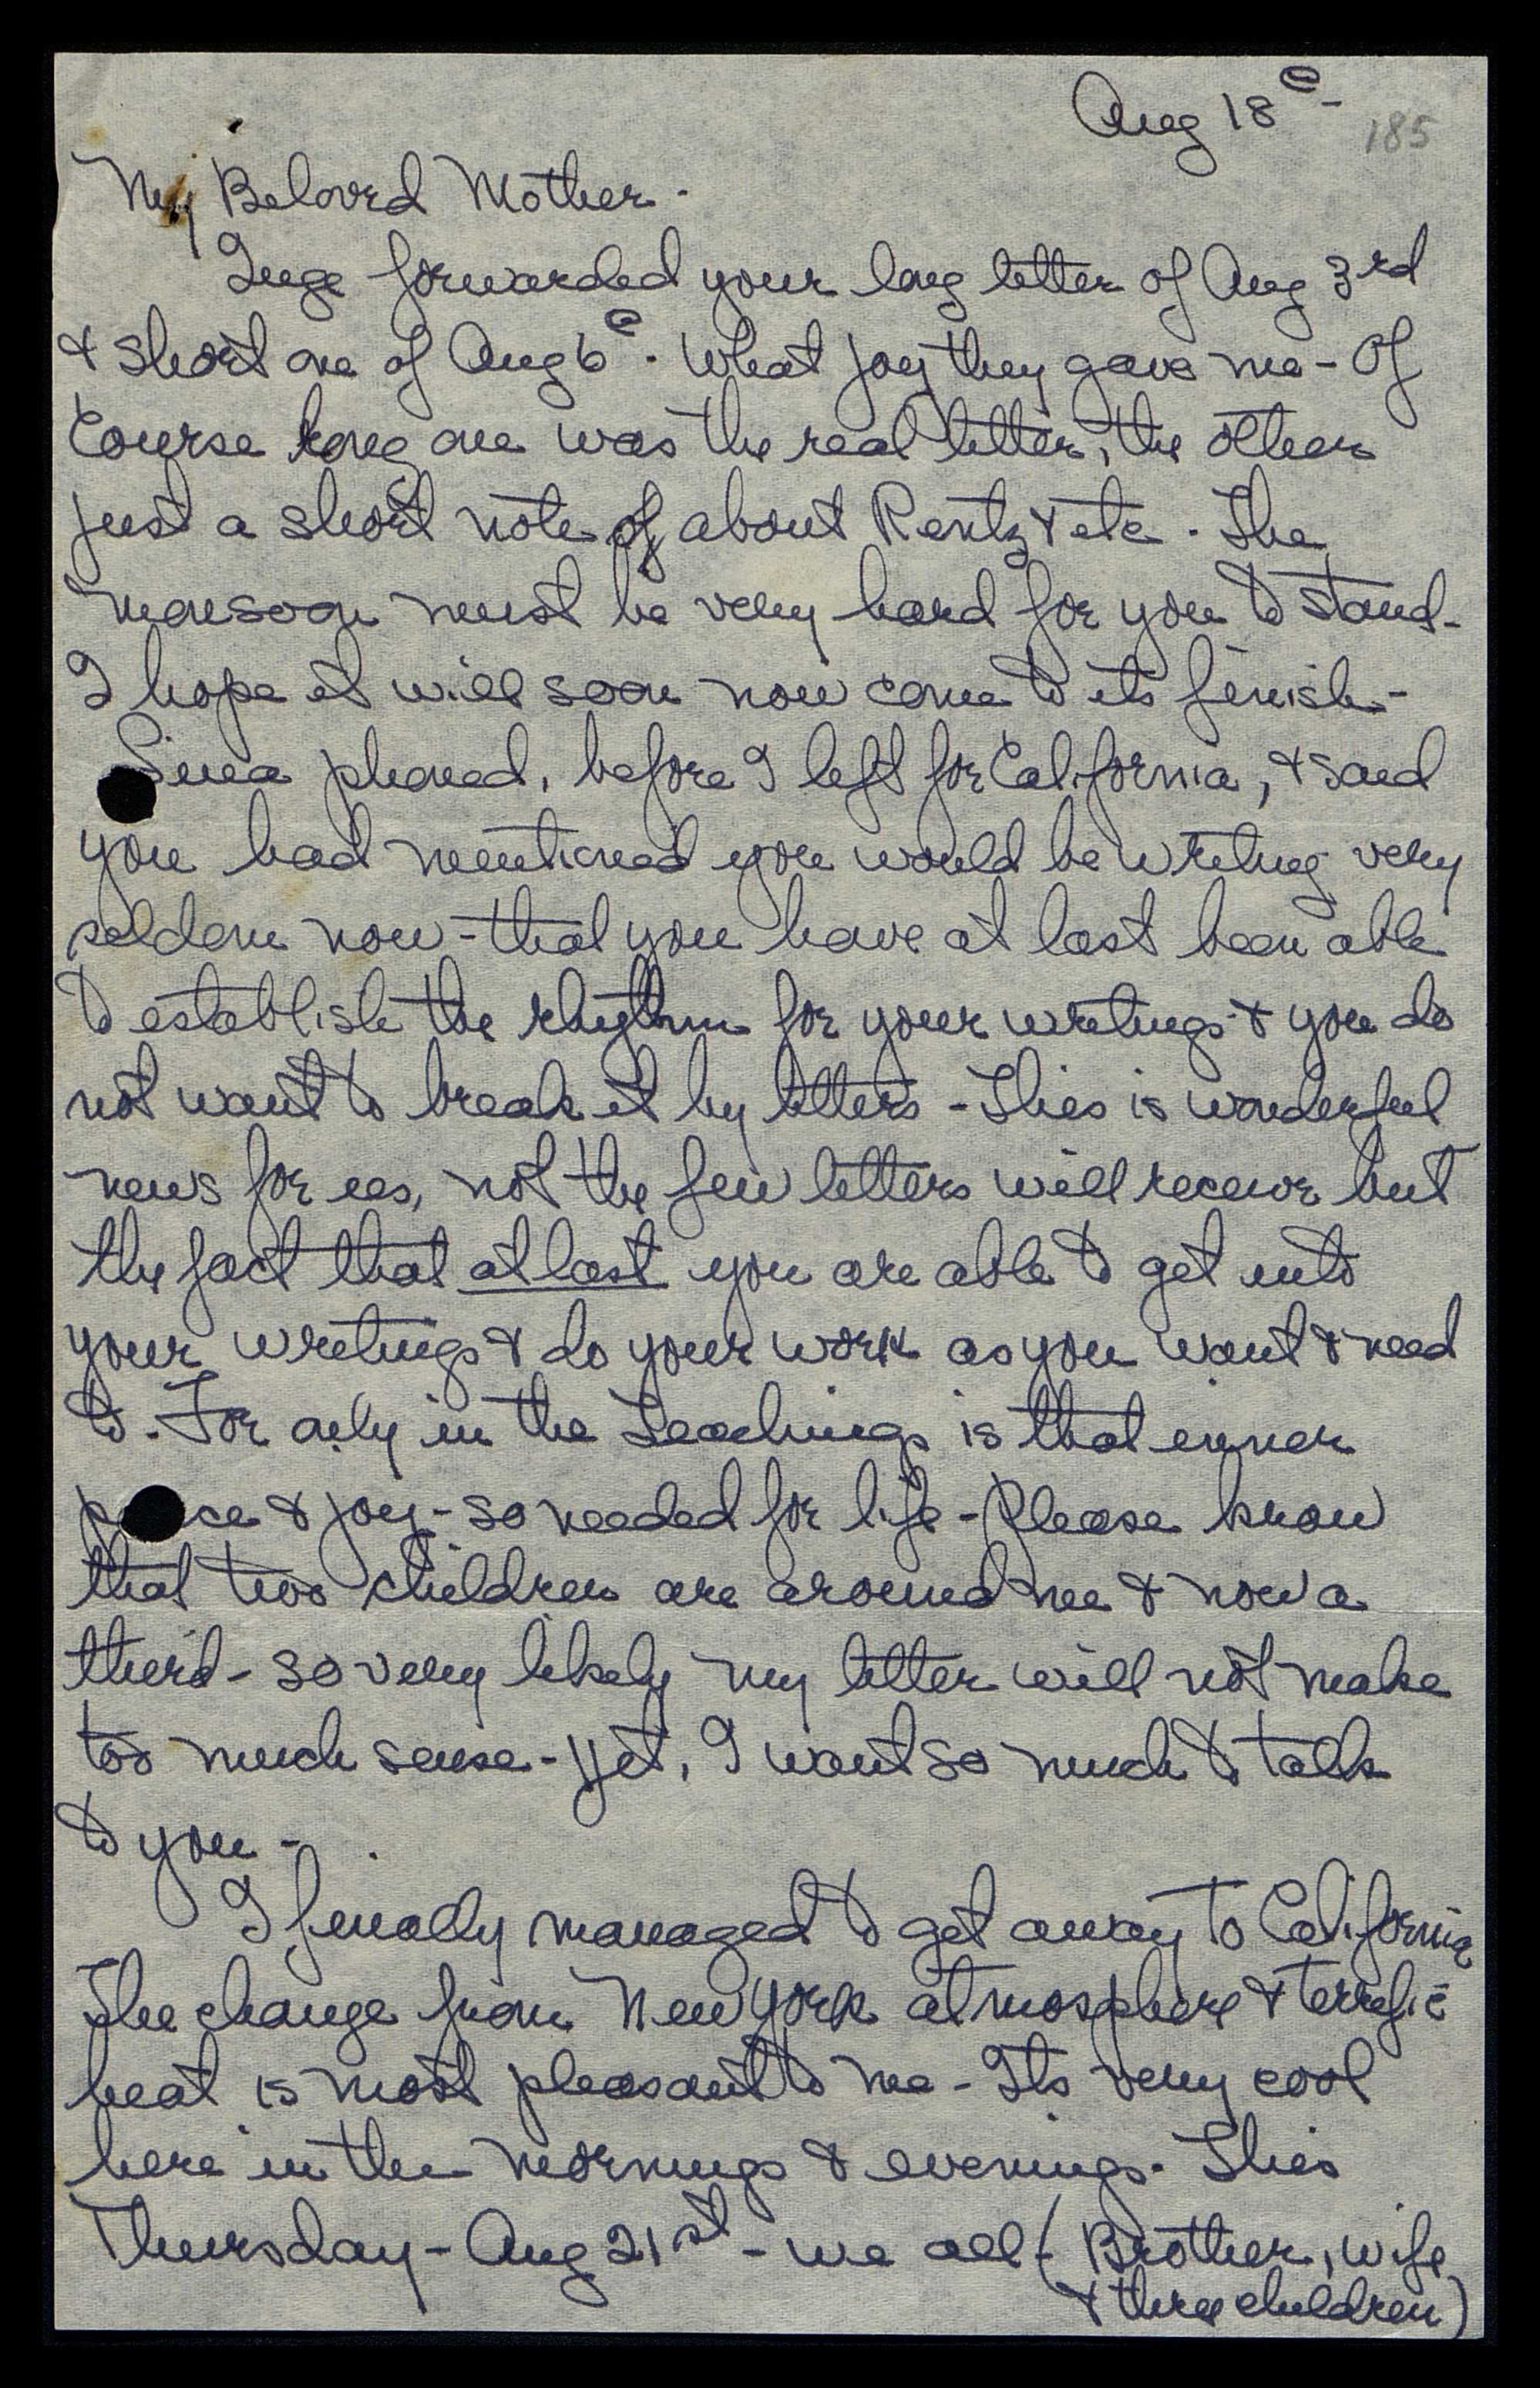 Aug 18e -
185
My Beloved Mother -
Inge forwarded your long letter of Aug 3rd
& short one of Aug 6e. What joy they gave me - Of
Course long one was the real letter, the other
just a short note of about Rentz & etc. The
monsoon must be very hard for you to stand -
I hope it will soon now come to its finish -
Sina phoned, before I left for California, & said
you had mentioned you would be writing very
seldom now - that you have at last been able
to establish the rhythm for your writings & you do
not want to break it by letters - This is wonderful
news for us, not the few letters will receive but
the fact that at last you are able to get into
your writings & do your work as you want & need
to. For only in the Teachings is that inner
peace & joy - so needed for life - Please know
that two children are around me & now a
third - so very likely my letter will not make
too much sense - yet, I want so much to talk
to you -
I finally managed to get away to California
The change from New York atmosphere & terrific
heat is most pleasant to me - Its very cool
here in the mornings & evenings. This
Thursday - Aug 21st - we all (Brother, wife
& three children)